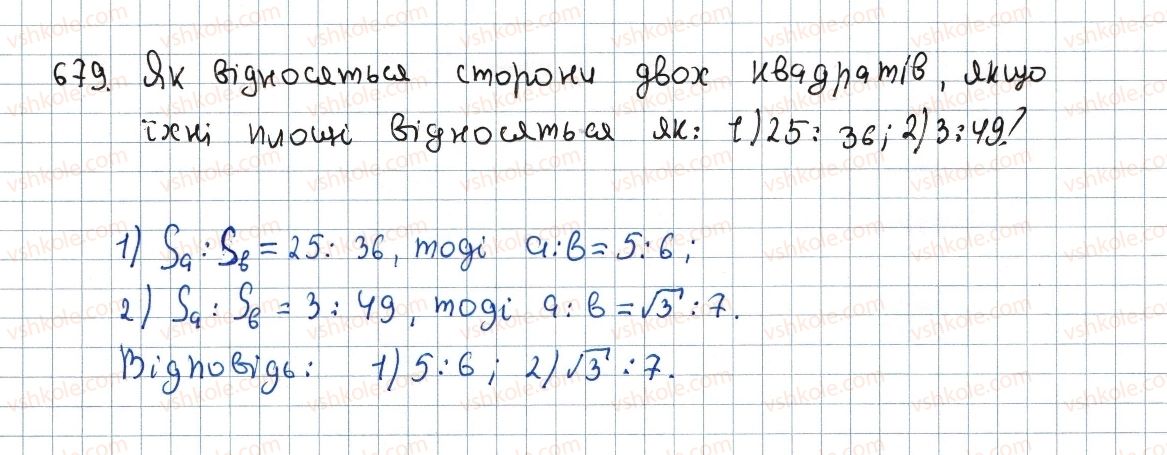 679. Як відносяться сторони двох квадратів, якщо
їхні площі відносяться як: 1) 25 : 36; 2) 3 : 49?
1) Sₐ : Sв = 25 : 36, тоді a : в = 5 : 6;
2) Sₐ : Sв = 3 : 49, тоді a : в = √3 : 7.
Відповідь: 1) 5 : 6; 2) √3 : 7.